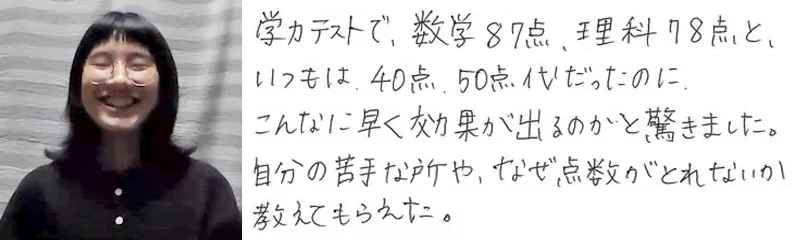 学力テストで、数学87点、理科78点と、
いつもは、40点、50点代だったのに、
こんなに早く効果が出るのかと驚きました。
自分の苦手な所や、なぜ点数がとれないか
教えてもらえた。